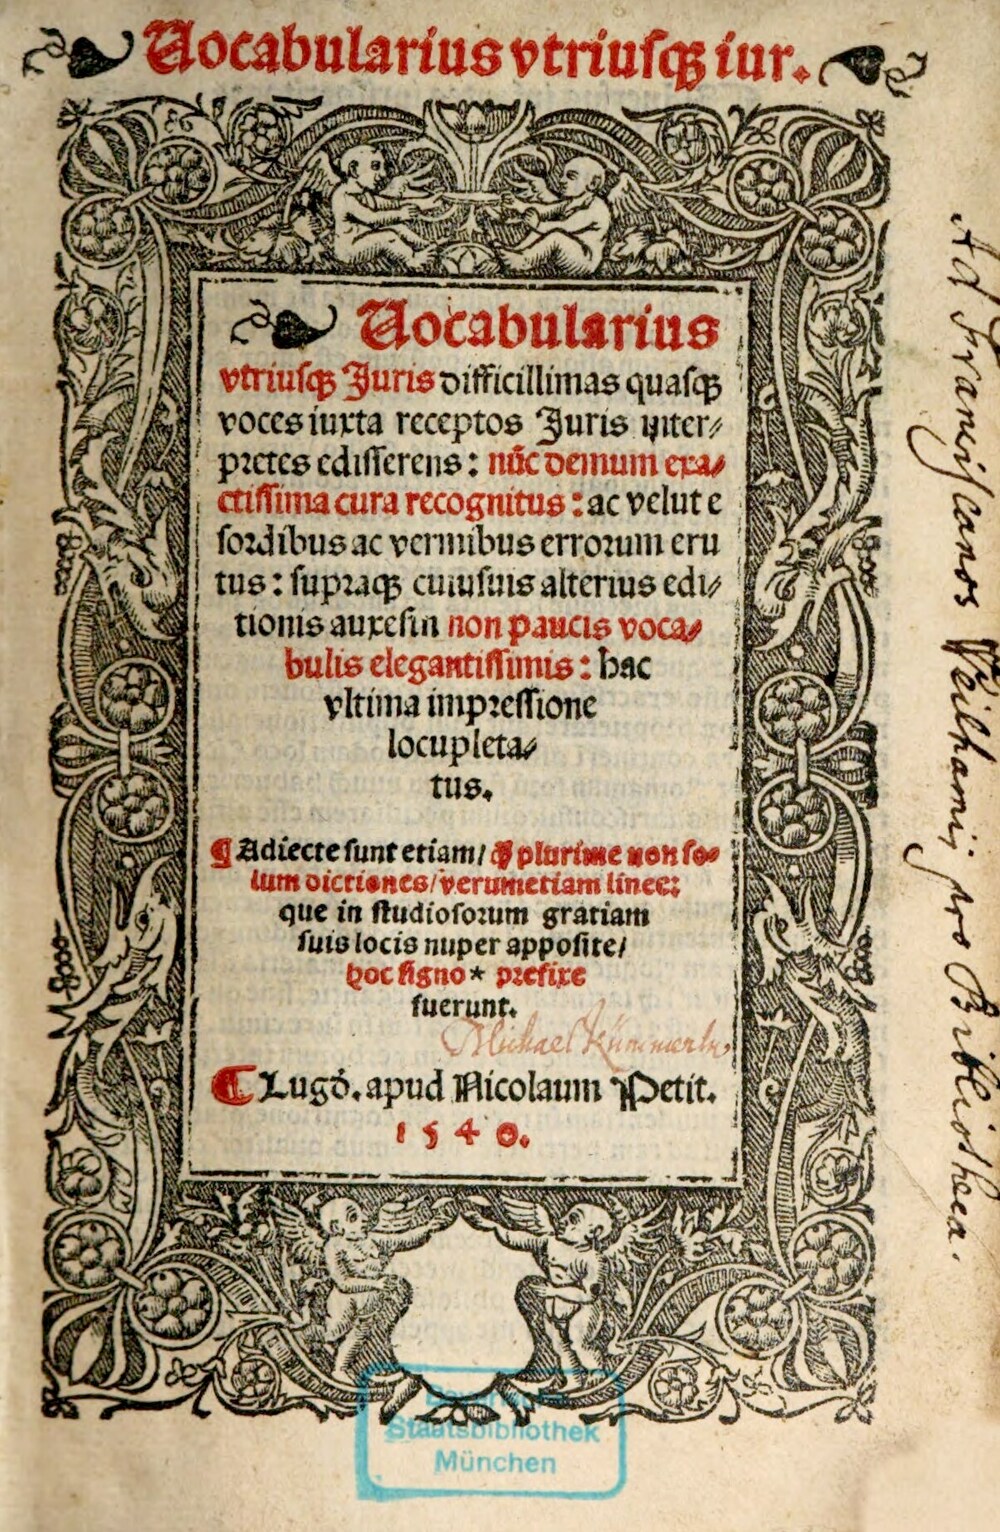 Uocabularius vtriusqꝫ iur.
Uocabularius
vtriusqꝫ Juris difficillimas quasqꝫ
voces iuxta receptos Juris inter⸗
pretes edisserens: nūc demum exa⸗
ctissima cura recognitus: ac velut e
sordibus ac vermibus errorum eru
tus: supraqꝫ cuiusuis alterius edi⸗
tionis auxesin non paucis voca⸗
bulis elegantissimis: hac
vltima impressione
locupleta⸗
tus.
¶ Adiecte sunt etiam/ qꝫ plurime non so⸗
lum dictiones/ verumetiam linee:
que in studiosorum gratiam
suis locis nuper apposite/
hoc signo * prefixe
fuerunt.
Michael
¶ Lugd. apud Nicolaum Petit.
1540.
Ad Franciscanos Weilhamij pro Bibliotheca.
Staatsbibliothek
München